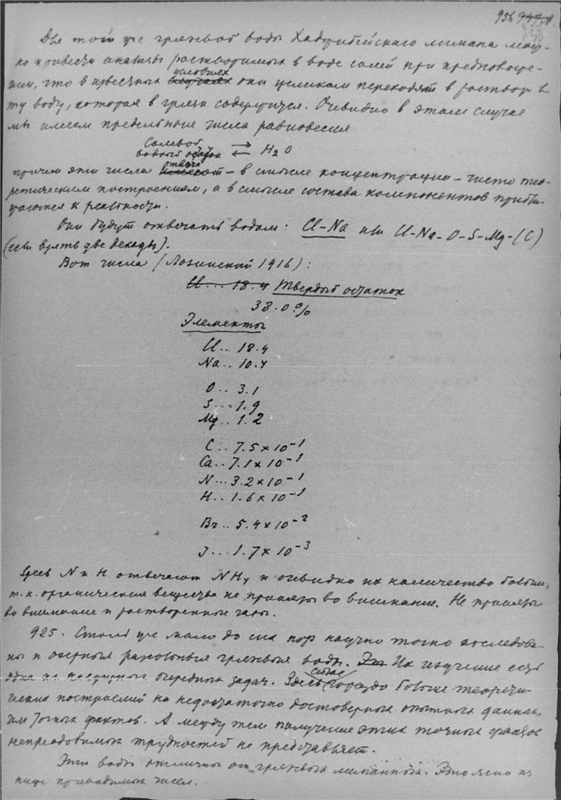 936
Для той же грязевой воды Хаджибейского лимана мож-
но привести анализы растворимых в воде солей при предположе-
нии, что в известных условиях они целиком переходят в раствор в
ту воду, которая в грязи содержится. Очевидно в этом случае
мы имеем предельные числа равновесия
Солевой
водный ⇄ H2O
причем эти числа отвеча – в смысле концентрации – чисто тео-
ретическим построениям, а в смысле состава компонентов прибли-
жаются к реальности.
Они будут отвечать водам: Cl-Na или Cl-Na-O-S-Mg-(C)
(если взять две декады).
Вот числа (Лозинский 1916):
Cl... 18.4 Твердый остаток
38.0%
Элементы
Cl.. 18.4
Na.. 10.4
O.. 3.1
S... 1.9
Mg.. 1.2
C.. 7.5×10⁻¹
Ca.. 7.1×10⁻¹
N... 3.2×10⁻¹
H.. 1.6×10⁻¹
Br.. 5.4×10⁻²
J... 1.7×10⁻³
Здесь N и H отвечают NH4 и очевидно их количество больше,
т.к. органические вещества не приняты во внимание. Не приняты
во внимание и растворенные газы.
925. Столь же мало до сих пор научно точно исследова-
ны и озерные рассольные грязевые воды. Их изучение есть
одна из насущных очередных задач. Здесь сейчас гораздо больше теорети-
ческих построений на недостаточно достоверных опытных данных,
чем точных фактов. А между тем получение этих точных фактов
непреодолимых трудностей не представляет.
Эти воды отличны от грязевых лиманных. Это ясно из
ниже приводимых чисел.